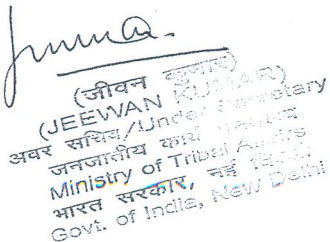 (जीवन कुमार)
(JEEWAN KUMAR)
अवर सचिव/Under Secretary
जनजातीय कार्य
Ministry of Tribal Affairs
भारत सरकार, नई दिल्ली
Govt. of India, New Delhi